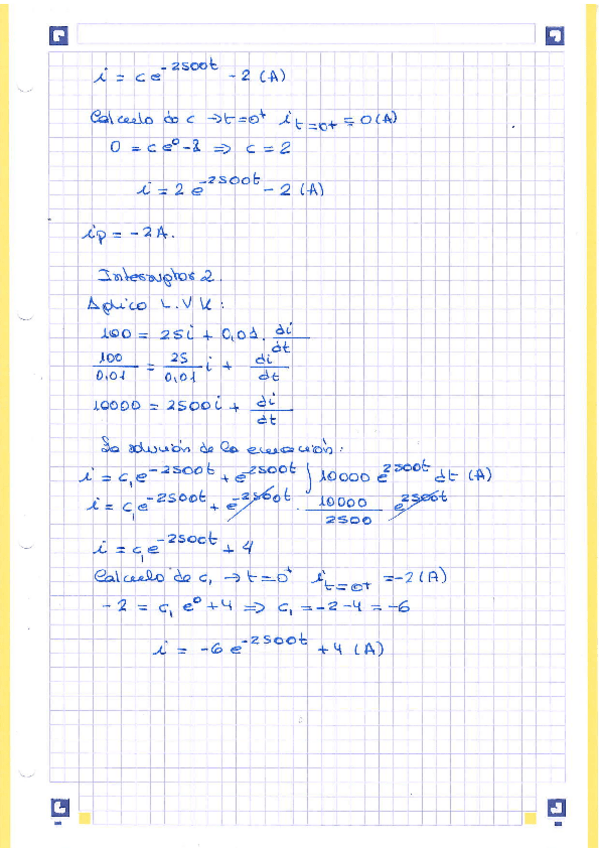 i = c e^-2500t - 2 (A)
Calculo de c → t=0+ i t=0+ = 0(A)
0 = c e⁰ - 2 ⇒ c = 2
i = 2 e^-2500t - 2 (A)
ip = -2A.
Interruptor 2.
Aplico L.V.K:
100 = 25i + 0,01. di/dt
100/0,01 = 25/0,01 i + di/dt
10000 = 2500i + di/dt
La solución de la ecuación:
i = c₁e^-2500t + e^-2500t ∫ 10000 e^2500t dt (A)
i = c₁e^-2500t + e^-2500t . 10000/2500 e^2500t
i = c₁e^-2500t + 4
Calculo de c₁ → t=0+ i t=0+ = -2(A)
-2 = c₁ e⁰ + 4 ⇒ c₁ = -2-4 = -6
i = -6 e^-2500t + 4 (A)